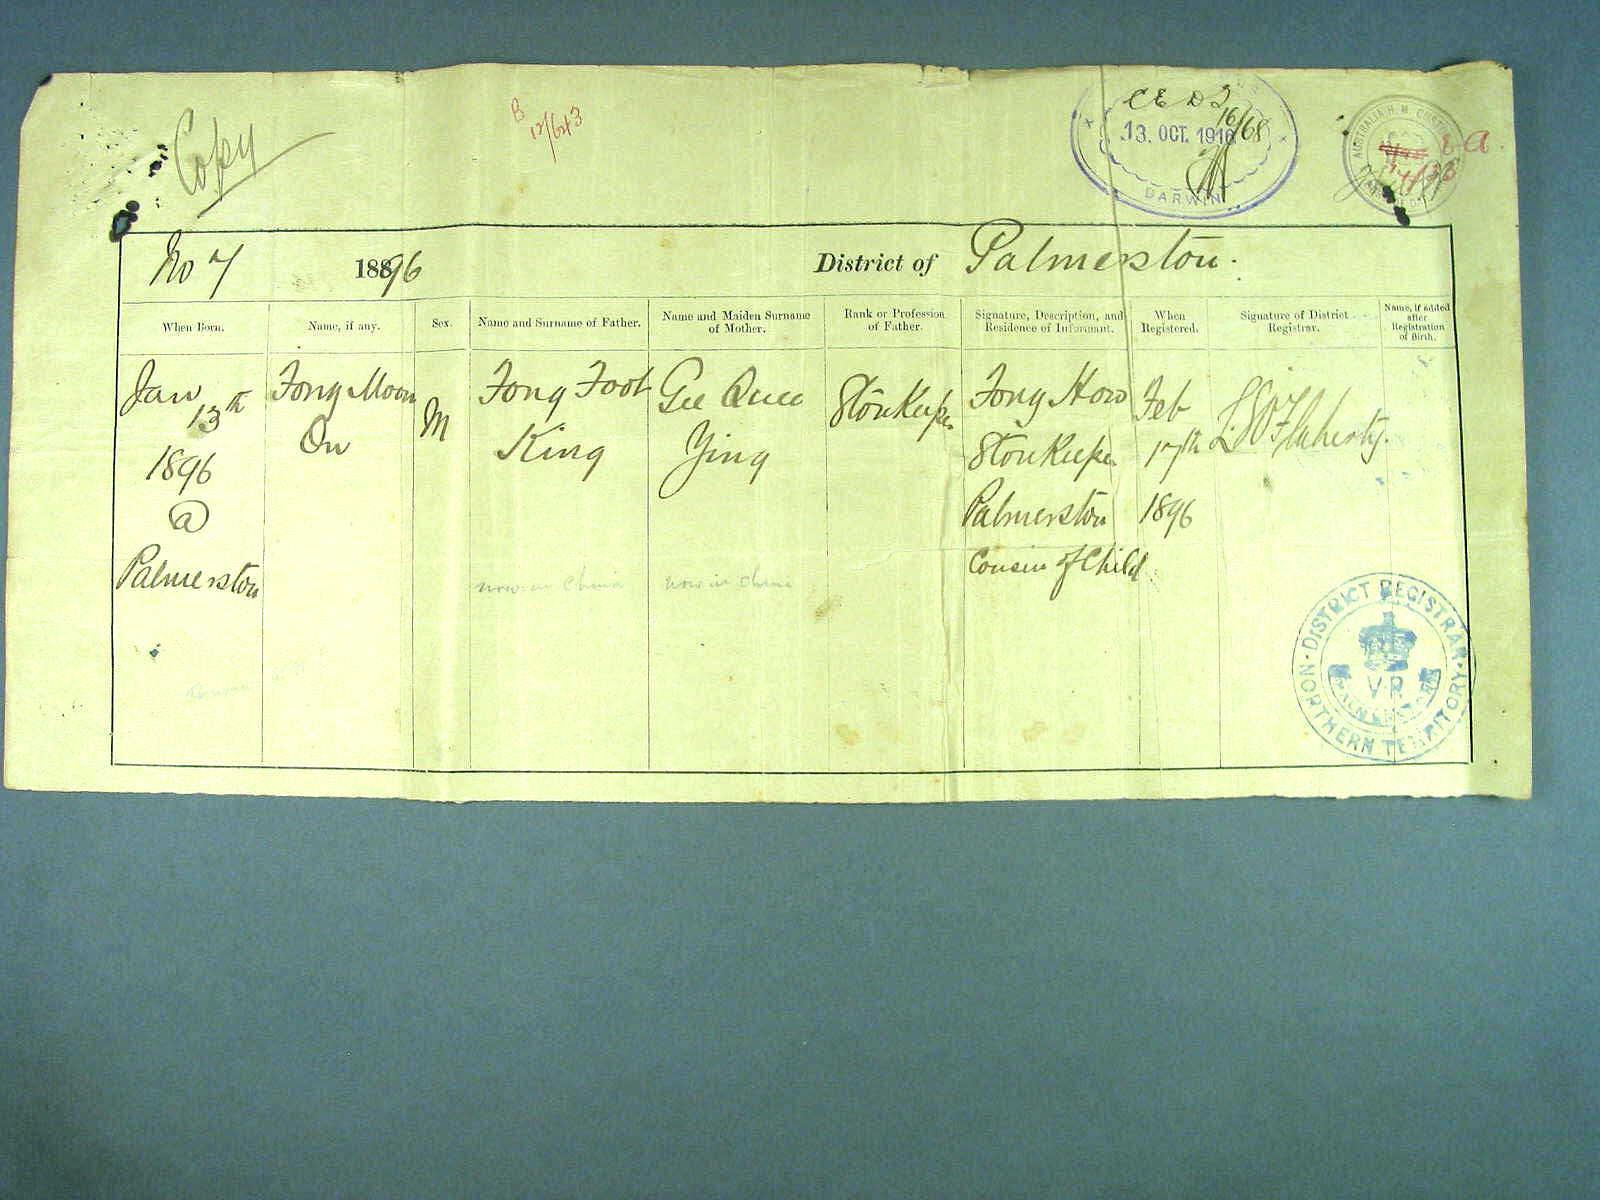 Copy
B
12/643
C E D 2
16/68
13. OCT. 1916
DARWIN
AUSTRALIA H. M. CUSTOMS
No 7 18896 District of Palmerston.
When Born. Name, if any. Sex. Name and Surname of Father. Name and Maiden Surname of Mother. Rank or Profession of Father. Signature, Description, and Residence of Informant. When Registered. Signature of District Registrar. Name, if added after Registration of Birth.
Jan 13th 1896 @ Palmerston
Fong Moon On
M
Fong Foot King
now in China
Gee Quee Ying
now in China
Storekeeper
Fong How
Storekeeper
Palmerston
Cousin of Child
Feb 17th 1896
L. S. O'Flaherty.
DISTRICT REGISTRAR
V R
PALMERSTON
NORTHERN TERRITORY